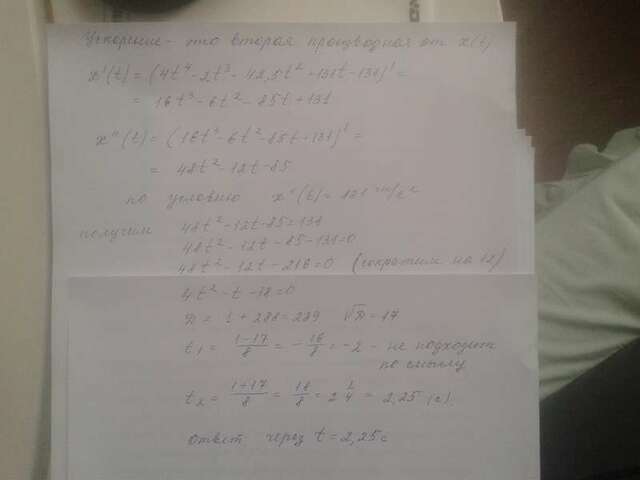 Ускорение - это вторая производная от x(t)
x'(t) = (4t⁴-2t³-42,5t²+131t-131)' =
= 16t³-6t²-85t+131
x''(t) = (16t³-6t²-85t+131)' =
= 48t²-12t-85
по условию x''(t) = 131 м/с²
получим 48t²-12t-85=131
48t²-12t-85-131=0
48t²-12t-216=0 (сократим на 12)
4t²-t-18=0
D = 1+288=289 √D=17
t₁ = (1-17)/8 = -16/8 = -2 - не подходит
по смыслу
t₂ = (1+17)/8 = 18/8 = 2 1/4 = 2,25 (с).
ответ через t=2,25с